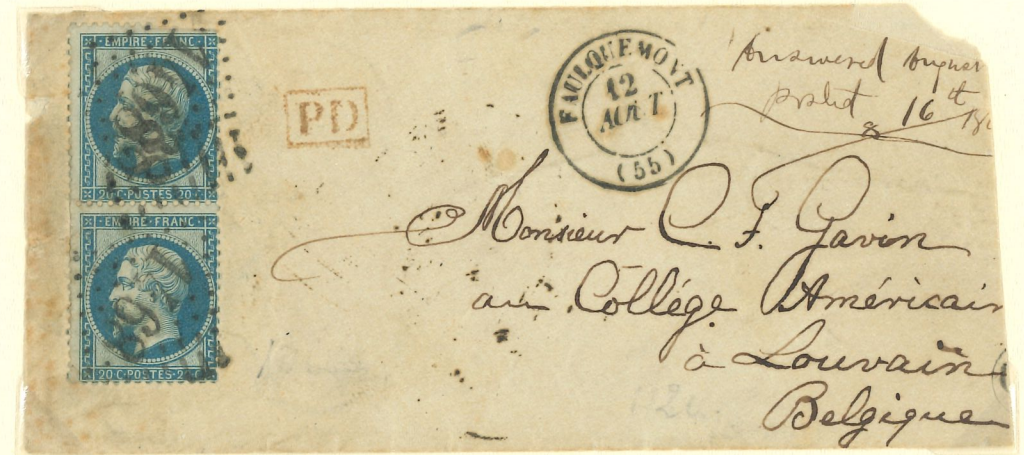 EMPIRE FRANC
20 C POSTES 20 C
EMPIRE FRANC
20 C POSTES 20 C
PD
FAULQUEMONT
12
AOUT
(55)
Answered
16th
Monsieur C. F. Gavin
au Collége Américain
à Louvain
Belgique